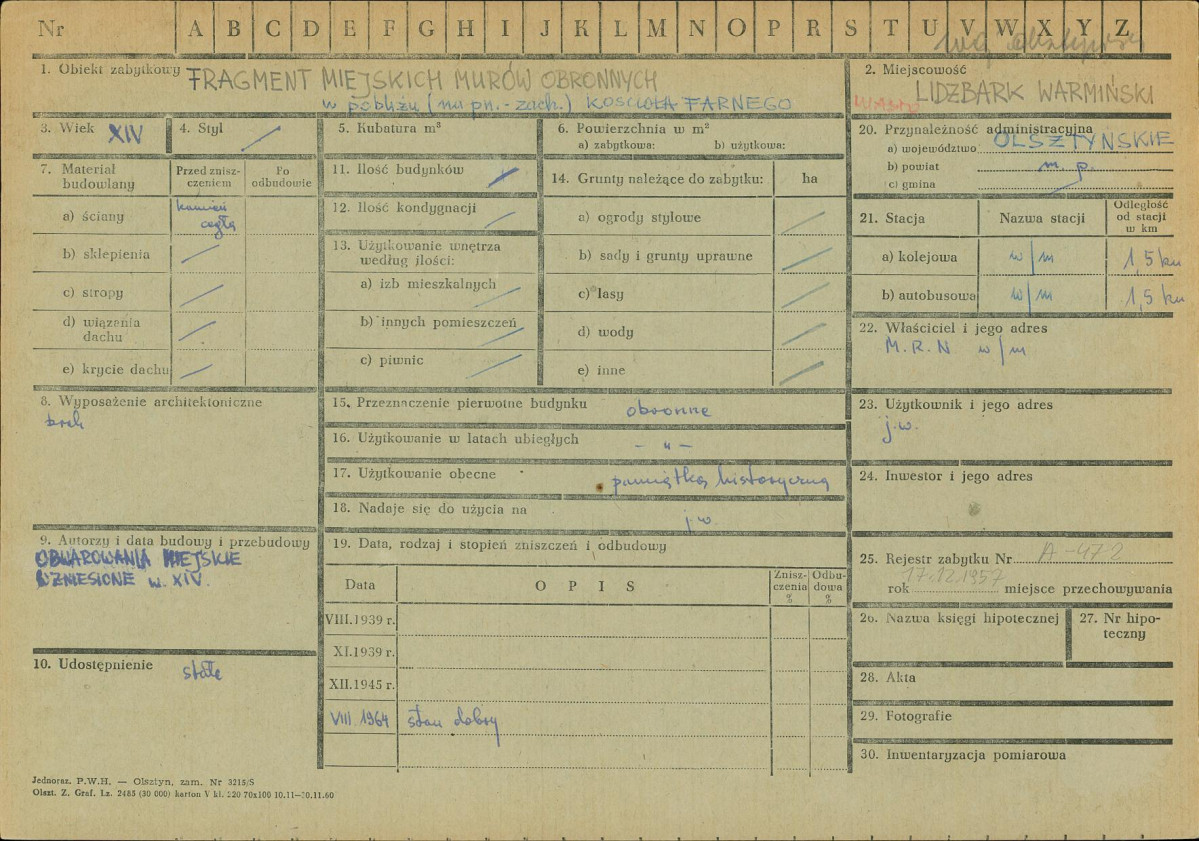 Nr A B C D E F G H I J K L M N O P R S T U V W X Y Z
1. Obiekt zabytkowy FRAGMENT MIEJSKICH MURÓW OBRONNYCH
w pobliżu (na pn.-zach.) KOŚCIOŁA FARNEGO
2. Miejscowość
LIDZBARK WARMIŃSKI
3. Wiek XIV
4. Styl
5. Kubatura m³
6. Powierzchnia w m²
a) zabytkowa: b) użytkowa:
20. Przynależność administracyjna
a) województwo OLSZTYŃSKIE
b) powiat m. p.
c) gmina
7. Materiał budowlany
Przed zniszczeniem
Po odbudowie
a) ściany kamień
cegła
b) sklepienia
c) stropy
d) wiązania
dachu
e) krycie dachu
11. Ilość budynków
12. Ilość kondygnacji
13. Użytkowanie wnętrza
według ilości:
a) izb mieszkalnych
b) innych pomieszczeń
c) piwnic
14. Grunty należące do zabytku: ha
a) ogrody stylowe
b) sady i grunty uprawne
c) lasy
d) wody
e) inne
21. Stacja Nazwa stacji Odległość
od stacji
w km
a) kolejowa w/m 1,5 km
b) autobusowa w/m 1,5 km
22. Właściciel i jego adres
M.R.N w/m
8. Wyposażenie architektoniczne
brak
15. Przeznaczenie pierwotne budynku obronne
16. Użytkowanie w latach ubiegłych – „ –
17. Użytkowanie obecne pamiątka historyczna
18. Nadaje się do użycia na j.w.
23. Użytkownik i jego adres
j.w.
24. Inwestor i jego adres
9. Autorzy i data budowy i przebudowy
OBWAROWANIA MIEJSKIE
WZNIESIONE w. XIV.
10. Udostępnienie stałe
19. Data, rodzaj i stopień zniszczeń i odbudowy
Data OPIS Zniszczenia % Odbudowa %
VIII.1939 r.
XI.1939 r.
XII.1945 r.
VIII 1964 stan dobry
25. Rejestr zabytku Nr A-472
rok 17.12.1957 miejsce przechowywania
26. Nazwa księgi hipotecznej
27. Nr hipoteczny
28. Akta
29. Fotografie
30. Inwentaryzacja pomiarowa
Jednoraz. P.W.H. — Olsztyn, zam. Nr 3215/S
Olszt. Z. Graf. Lz. 2485 (30 000) karton V kl. 220 70x100 10.11—30.11.60